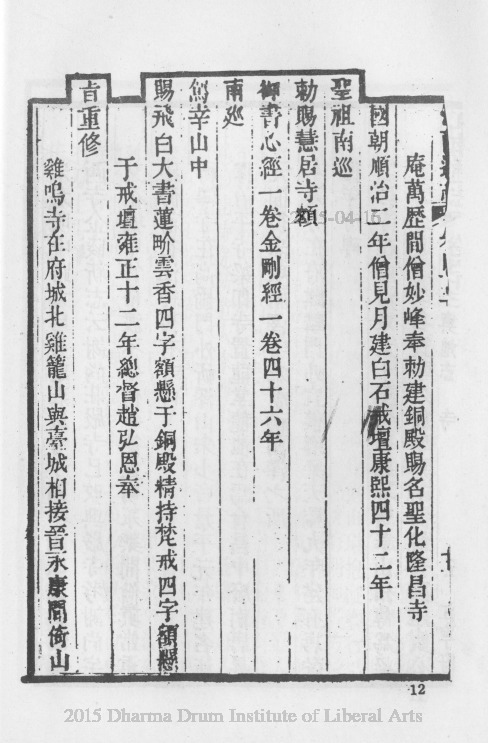 庵萬歷間僧妙峰奉勅建銅殿賜名聖化隆昌寺
國朝順治二年僧見月建白石戒壇康熙四十二年
聖祖南巡
勅賜慧居寺額
御書心經一卷金剛經一卷四十六年
南廵
駕幸山中
賜飛白大書蓮畍雲香四字額懸于銅殿精持梵戒四字額懸
于戒壇雍正十二年總督趙弘恩奉
旨重修
雞鳴寺在府城北雞籠山與臺城相接晉永康間倚山
12
2015-04-16
2015 Dharma Drum Institute of Liberal Arts